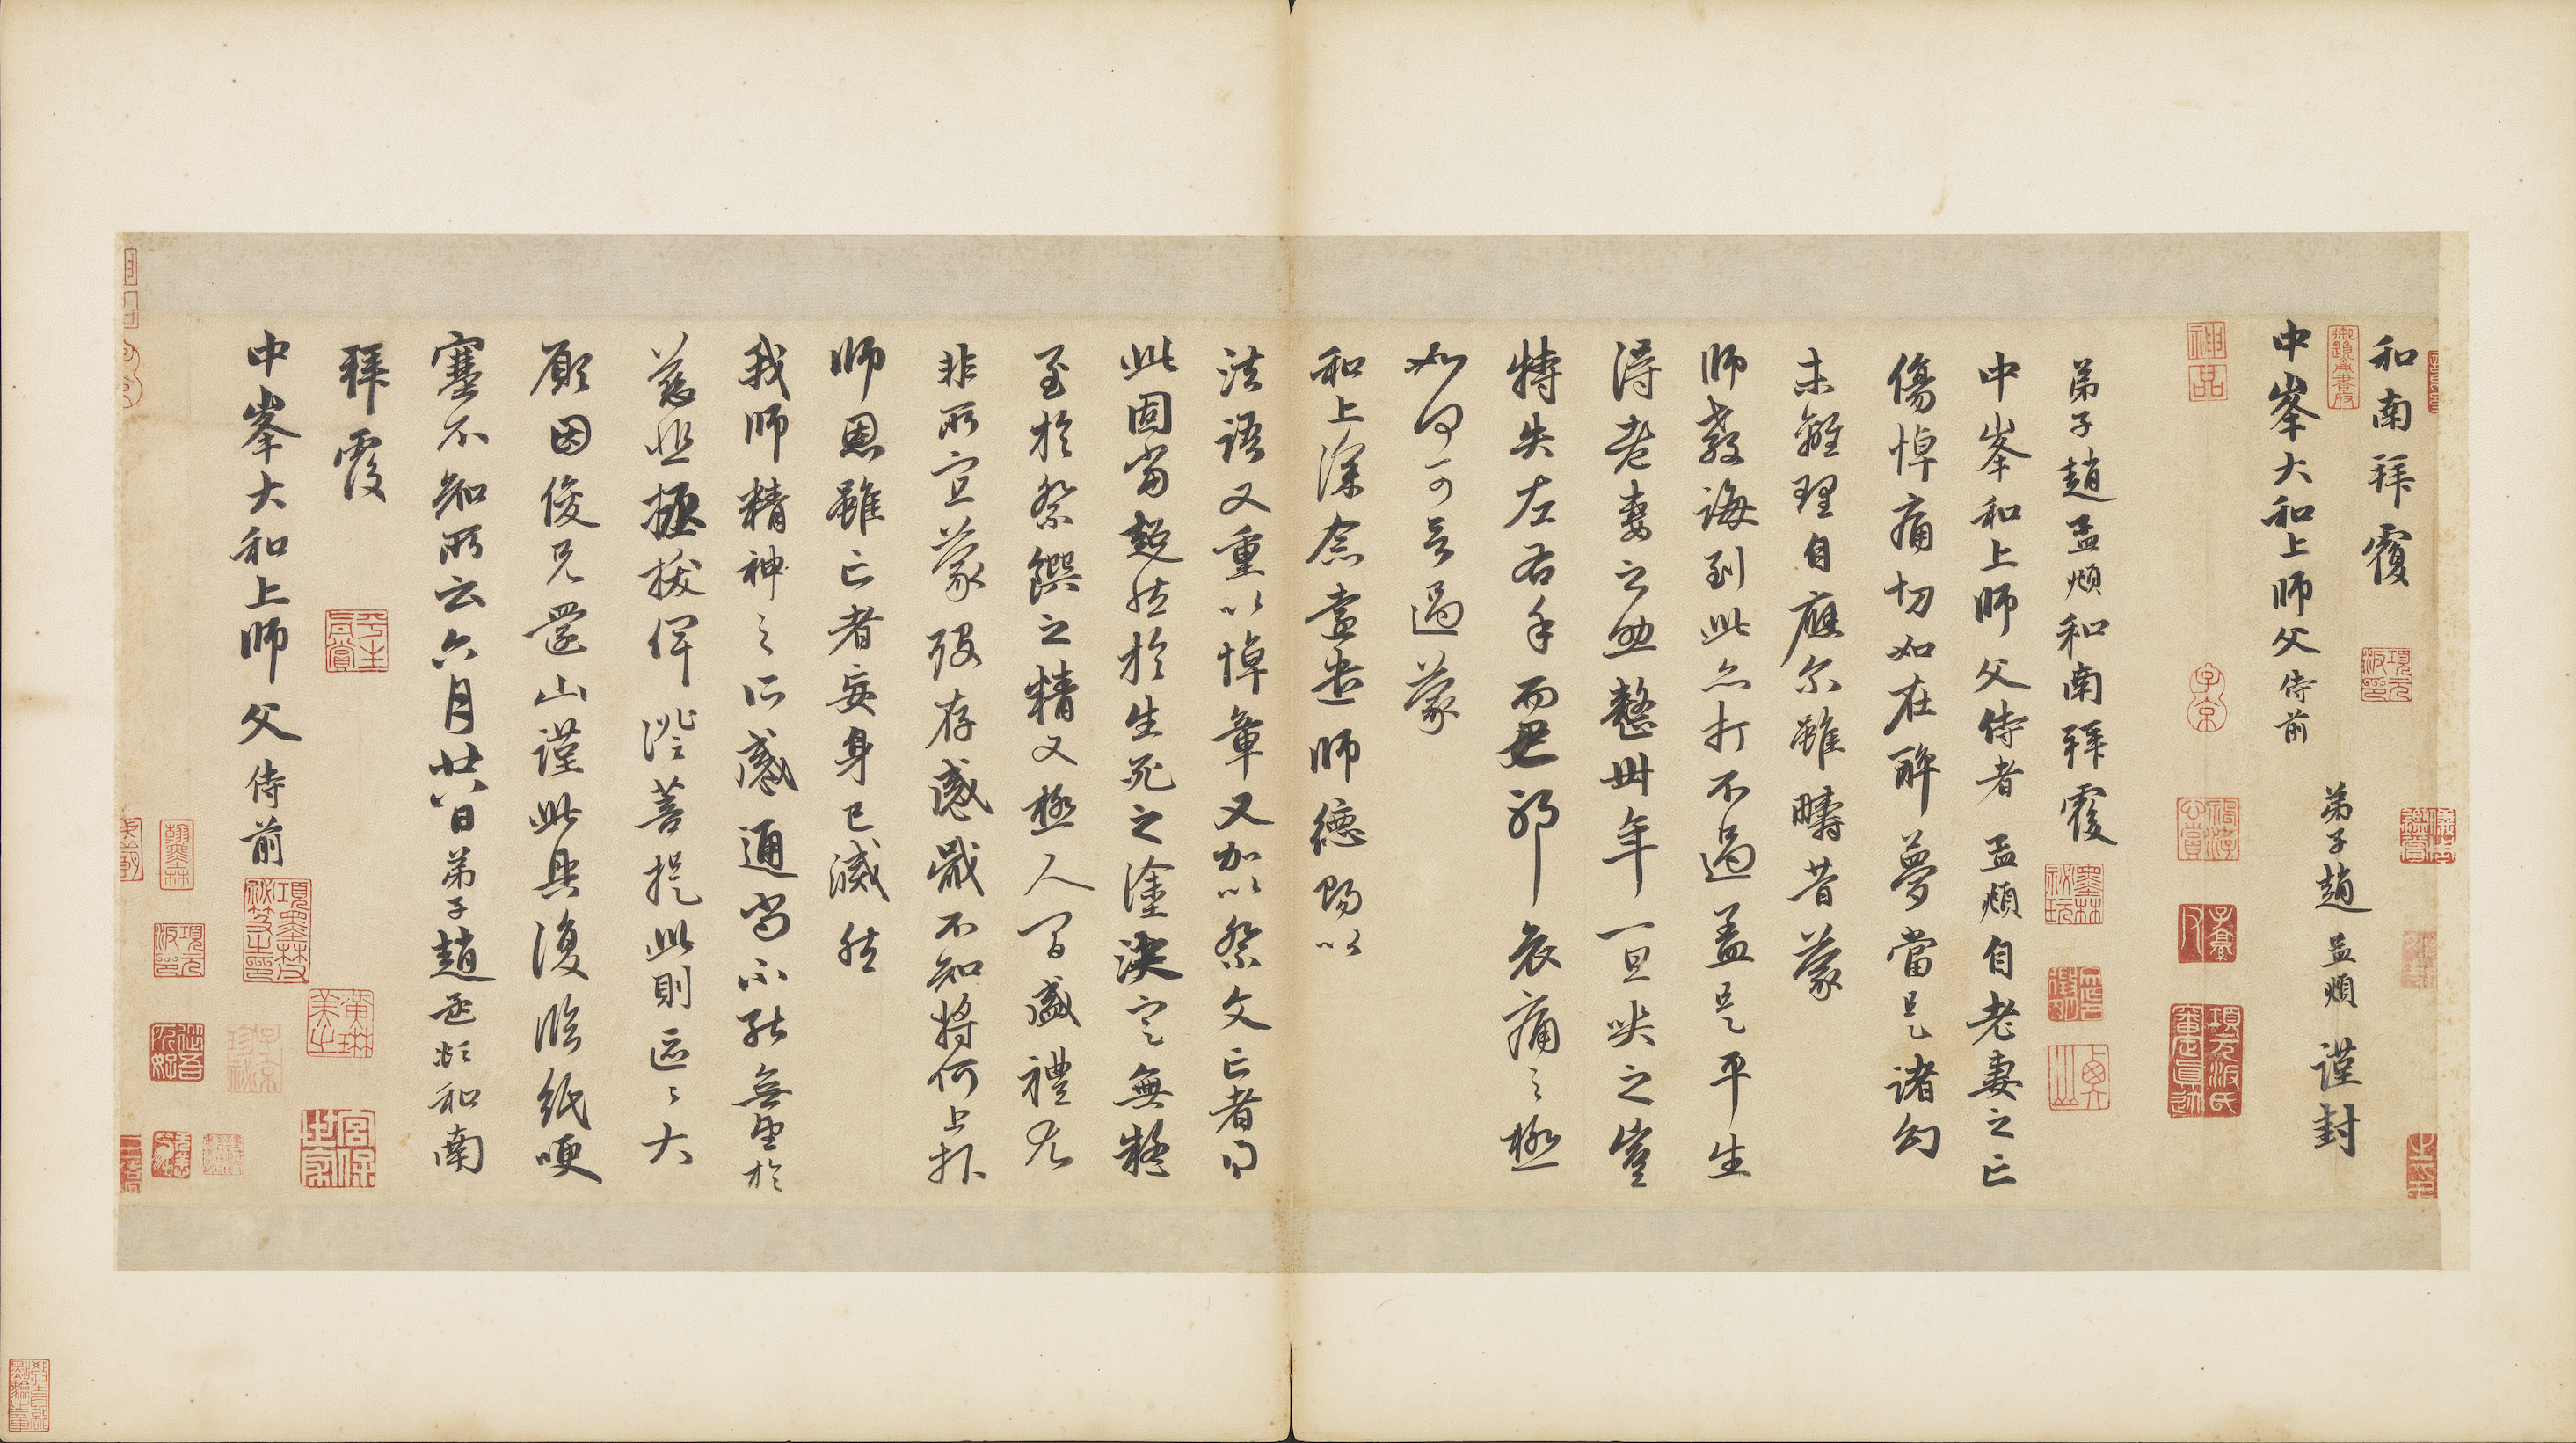 和南拜覆
中峯大和上師父侍前
弟子趙孟頫謹封
弟子趙孟頫和南拜覆
中峯和上師父侍者孟頫自老妻之亡
傷悼痛切如在醉夢當是諸幻
未離理自應爾雖疇昔蒙
師教誨到此亦打不過蓋是平生
得老妻之助整卅年一旦哭之豈
特失左右手而已耶哀痛之極
如何可言過蒙
和上深念遠遣師德賜以
法語又重以悼章又加以祭文亡者得
此固當超然於生死之塗決定無疑
至於祭饌之精又極人間盛禮尤
非所宜蒙歿存感戴不知將何上報
師恩雖亡者妄身已滅然
我師精神之所感通尚不能無望於
慈悲拯拔俾證菩提此則區區大
願因俊兄還山謹此具復臨紙哽
塞不知所云六月廿八日弟子趙孟頫和南
拜覆
中峯大和上師父侍前
神品
子京